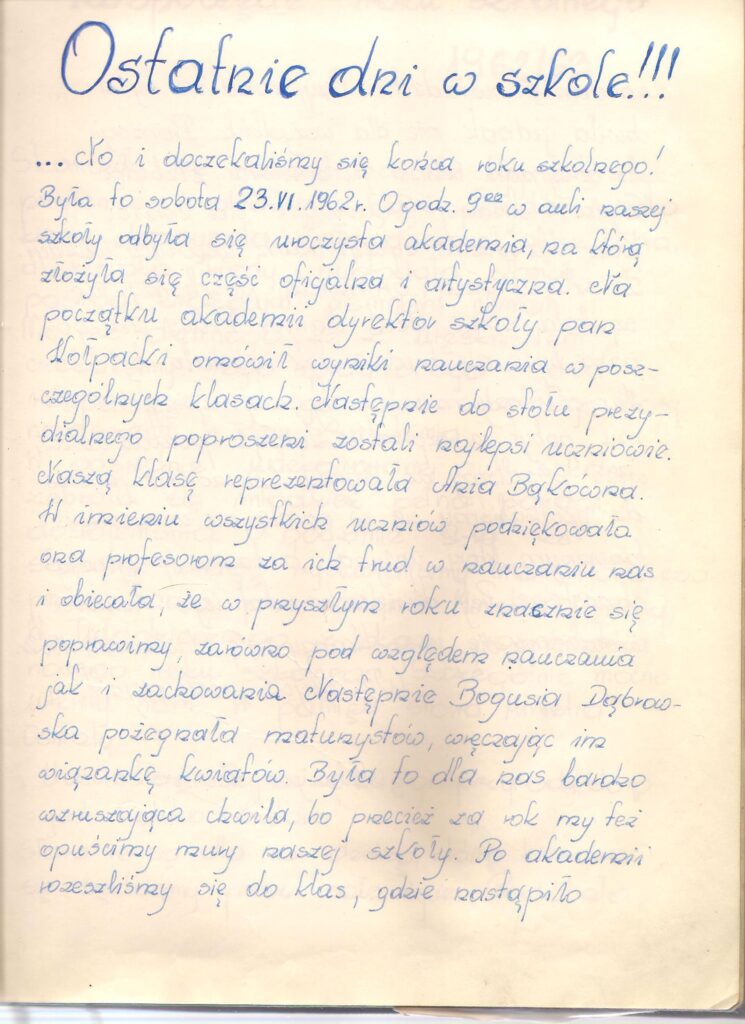 Ostatnie dni w szkole!!!
... No i doczekaliśmy się końca roku szkolnego!
Była to sobota 23.VI.1962r. O godz. 9ºº w auli naszej
szkoły odbyła się uroczysta akademia, na którą
złożyła się część oficjalna i artystyczna. Na
początku akademii dyrektor szkoły pan
Wołpacki omówił wyniki nauczania w posz-
czególnych klasach. Następnie do stołu prezy-
dialnego poproszeni zostali najlepsi uczniowie.
Naszą klasę reprezentowała Ania Bąkówna.
W imieniu wszystkich uczniów podziękowała
ona profesorom za ich trud w nauczaniu nas
i obiecała, że w przyszłym roku znacznie się
poprawimy, zarówno pod względem nauczania
jak i zachowania Następnie Bogusia Dąbrow-
ska pożegnała maturzystów, wręczając im
wiązankę kwiatów. Była to dla nas bardzo
wzruszająca chwila, bo przecież za rok my też
opuścimy mury naszej szkoły. Po akademii
rozeszliśmy się do klas, gdzie nastąpiło